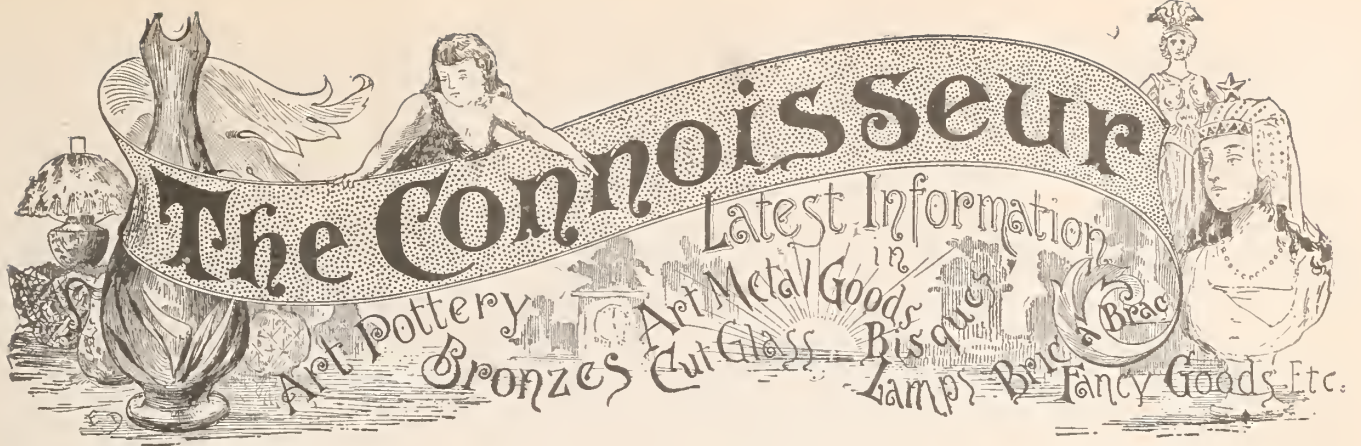 The Connoisseur
Latest Information
in
Art Pottery
Bronzes
Art Metal Goods
Cut Glass
Bisques
Lamps
Bric a Brac
Fancy Goods Etc.
ED